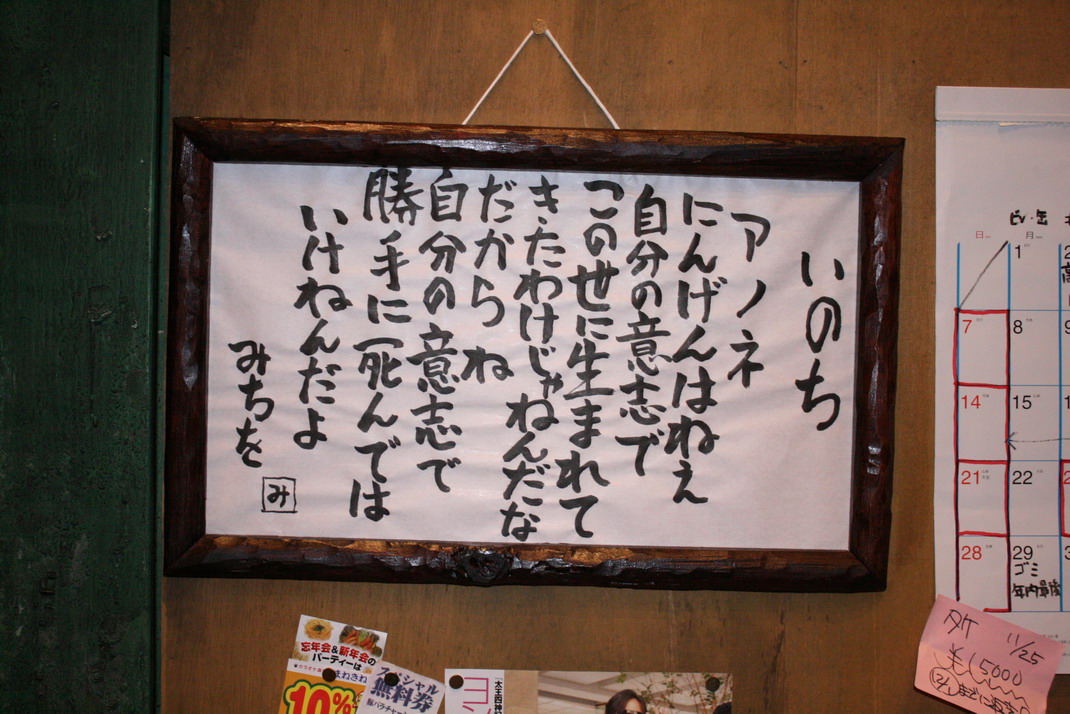 いのち
アノネ
にんげんはねえ
自分の意志で
この世に生まれて
きたわけじゃねんだな
だからね
自分の意志で
勝手に死んでは
いけねんだよ
みちを
み
日 月
ビン・缶
1
7 8
14 15
21 22
28 29
ゴミ
年内最後
11/25
忘年会&新年会の
パーティーは
まねきね
10%
スペシャル
無料券